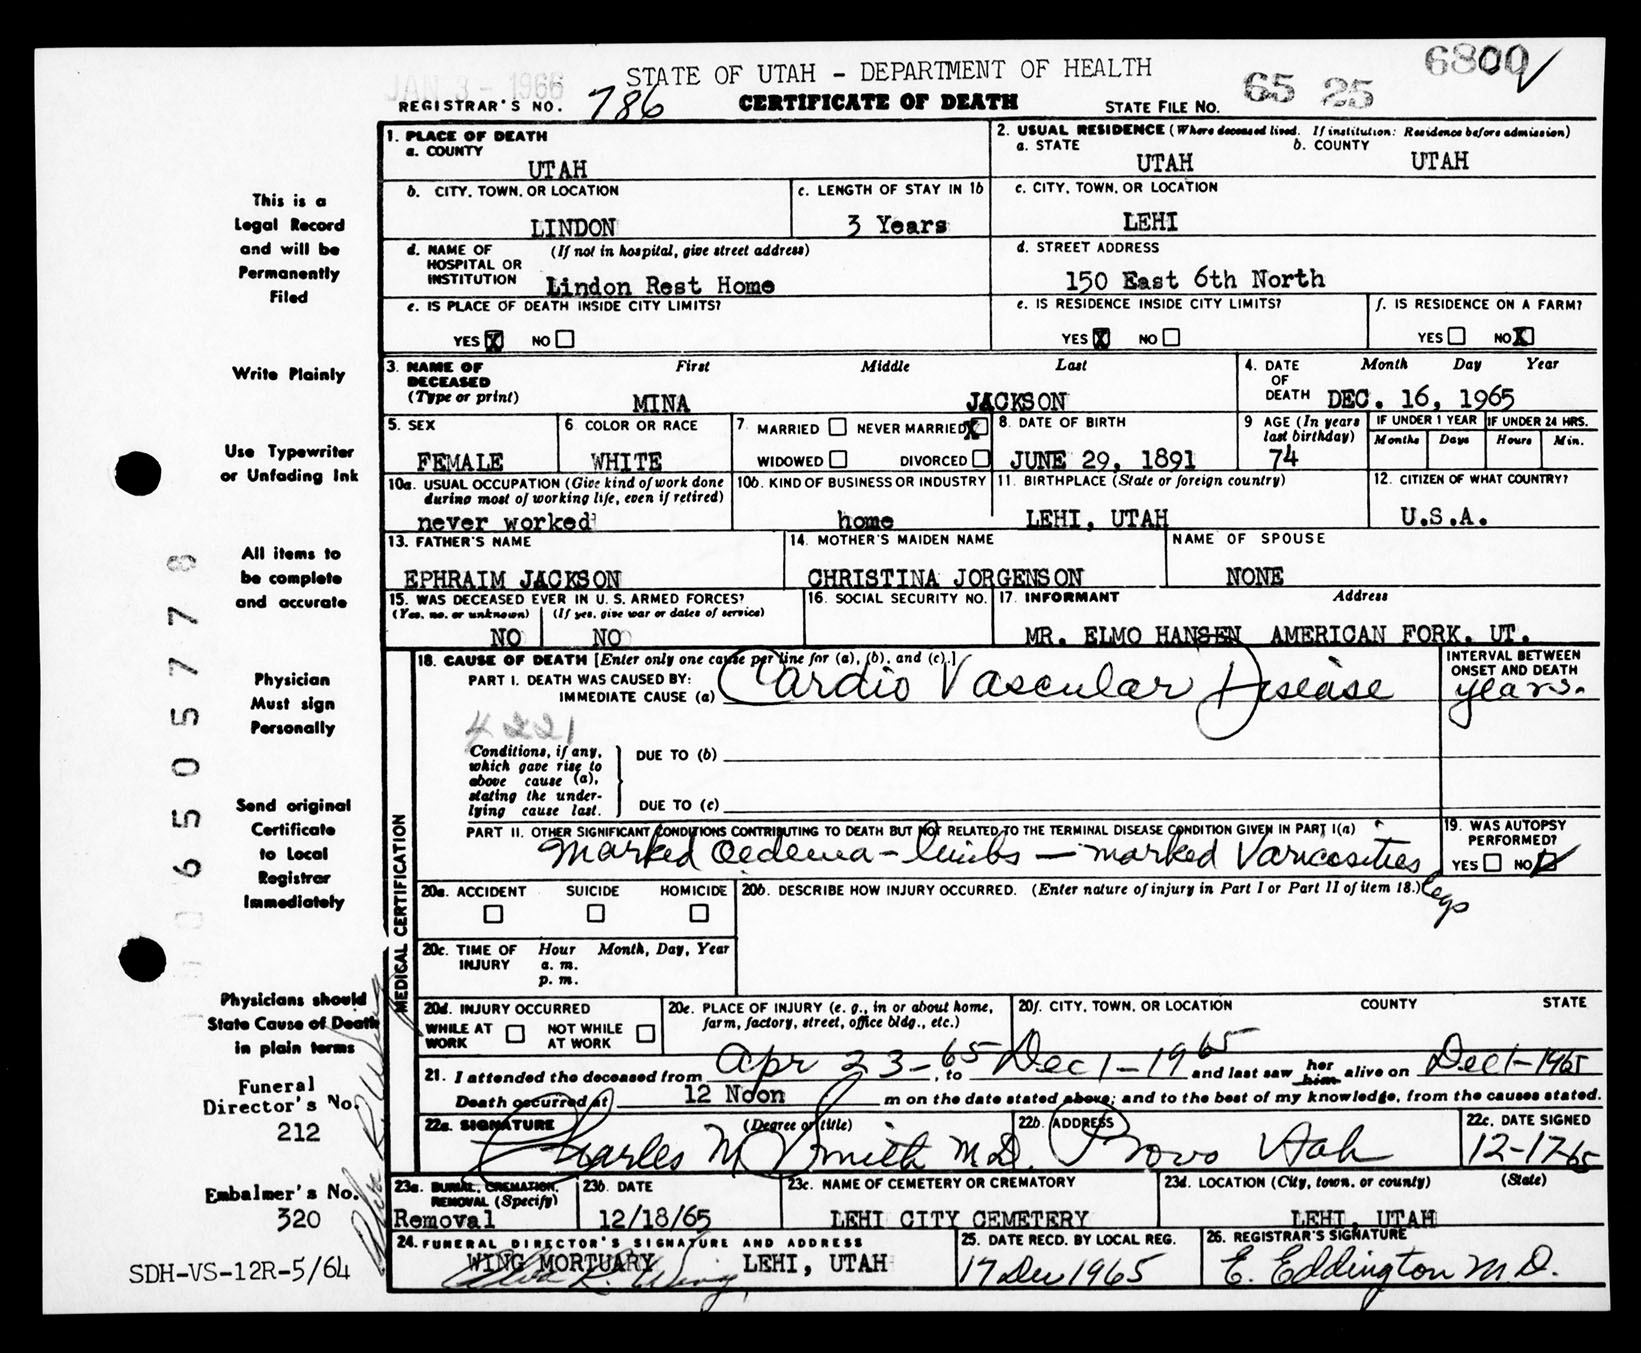 JAN 3 - 1966
STATE OF UTAH - DEPARTMENT OF HEALTH
6800
REGISTRAR'S NO. 786
CERTIFICATE OF DEATH
STATE FILE NO. 65 25
1. PLACE OF DEATH
a. COUNTY
UTAH
2. USUAL RESIDENCE (Where deceased lived. If institution: Residence before admission)
a. STATE
UTAH
b. COUNTY
UTAH
b. CITY, TOWN, OR LOCATION
LINDON
c. LENGTH OF STAY IN 1b
3 Years
c. CITY, TOWN, OR LOCATION
LEHI
d. NAME OF HOSPITAL OR INSTITUTION
(If not in hospital, give street address)
Lindon Rest Home
d. STREET ADDRESS
150 East 6th North
e. IS PLACE OF DEATH INSIDE CITY LIMITS?
YES X NO
e. IS RESIDENCE INSIDE CITY LIMITS?
YES X NO
f. IS RESIDENCE ON A FARM?
YES NO X
3. NAME OF DECEASED (Type or print)
First Middle Last
MINA JACKSON
4. DATE OF DEATH
Month Day Year
DEC. 16, 1965
5. SEX
FEMALE
6. COLOR OR RACE
WHITE
7. MARRIED NEVER MARRIED X
WIDOWED DIVORCED
8. DATE OF BIRTH
JUNE 29, 1891
9 AGE (In years last birthday)
74
IF UNDER 1 YEAR
Months Days
IF UNDER 24 HRS.
Hours Min.
10a. USUAL OCCUPATION (Give kind of work done during most of working life, even if retired)
never worked
10b. KIND OF BUSINESS OR INDUSTRY
home
11. BIRTHPLACE (State or foreign country)
LEHI, UTAH
12. CITIZEN OF WHAT COUNTRY?
U.S.A.
13. FATHER'S NAME
EPHRAIM JACKSON
14. MOTHER'S MAIDEN NAME
CHRISTINA JORGENSON
NAME OF SPOUSE
NONE
15. WAS DECEASED EVER IN U. S. ARMED FORCES?
(Yes, no, or unknown) (If yes, give war or dates of service)
NO NO
16. SOCIAL SECURITY NO.
17. INFORMANT Address
MR. ELMO HANSEN AMERICAN FORK, UT.
MEDICAL CERTIFICATION
18. CAUSE OF DEATH [Enter only one cause per line for (a), (b), and (c).]
PART I. DEATH WAS CAUSED BY:
IMMEDIATE CAUSE (a) Cardio Vascular Disease
INTERVAL BETWEEN ONSET AND DEATH
years.
4221
Conditions, if any, which gave rise to above cause (a), stating the underlying cause last.
DUE TO (b)
DUE TO (c)
PART II. OTHER SIGNIFICANT CONDITIONS CONTRIBUTING TO DEATH BUT NOT RELATED TO THE TERMINAL DISEASE CONDITION GIVEN IN PART I(a)
Marked Oedema - limbs - marked Varicosities legs
19. WAS AUTOPSY PERFORMED?
YES NO
20a. ACCIDENT SUICIDE HOMICIDE
20b. DESCRIBE HOW INJURY OCCURRED. (Enter nature of injury in Part I or Part II of item 18.)
20c. TIME OF INJURY
Hour Month, Day, Year
a. m.
p. m.
20d. INJURY OCCURRED
WHILE AT WORK NOT WHILE AT WORK
20e. PLACE OF INJURY (e. g., in or about home, farm, factory, street, office bldg., etc.)
20f. CITY, TOWN, OR LOCATION COUNTY STATE
21. I attended the deceased from Apr 23-65, to Dec 1-1965 and last saw her him alive on Dec 1-1965
Death occurred at 12 Noon m on the date stated above; and to the best of my knowledge, from the causes stated.
22a. SIGNATURE (Degree or title)
Charles M Smith M.D.
22b. ADDRESS
Provo Utah
22c. DATE SIGNED
12-17-65
23a. BURIAL, CREMATION, REMOVAL (Specify)
Removal
23b. DATE
12/18/65
23c. NAME OF CEMETERY OR CREMATORY
LEHI CITY CEMETERY
23d. LOCATION (City, town, or county) (State)
LEHI, UTAH
24. FUNERAL DIRECTOR'S SIGNATURE AND ADDRESS
WING MORTUARY LEHI, UTAH
25. DATE RECD. BY LOCAL REG.
17 Dec 1965
26. REGISTRAR'S SIGNATURE
E. Eddington M.D.
This is a
Legal Record
and will be
Permanently
Filed
Write Plainly
Use Typewriter
or Unfading Ink
All items to
be complete
and accurate
Physician
Must sign
Personally
Send original
Certificate
to Local
Registrar
Immediately
Physicians should
State Cause of Death
in plain terms
Funeral
Director's No.
212
Embalmer's No.
320
SDH-VS-12R-5/64
0 6 5 0 5 7 7 8